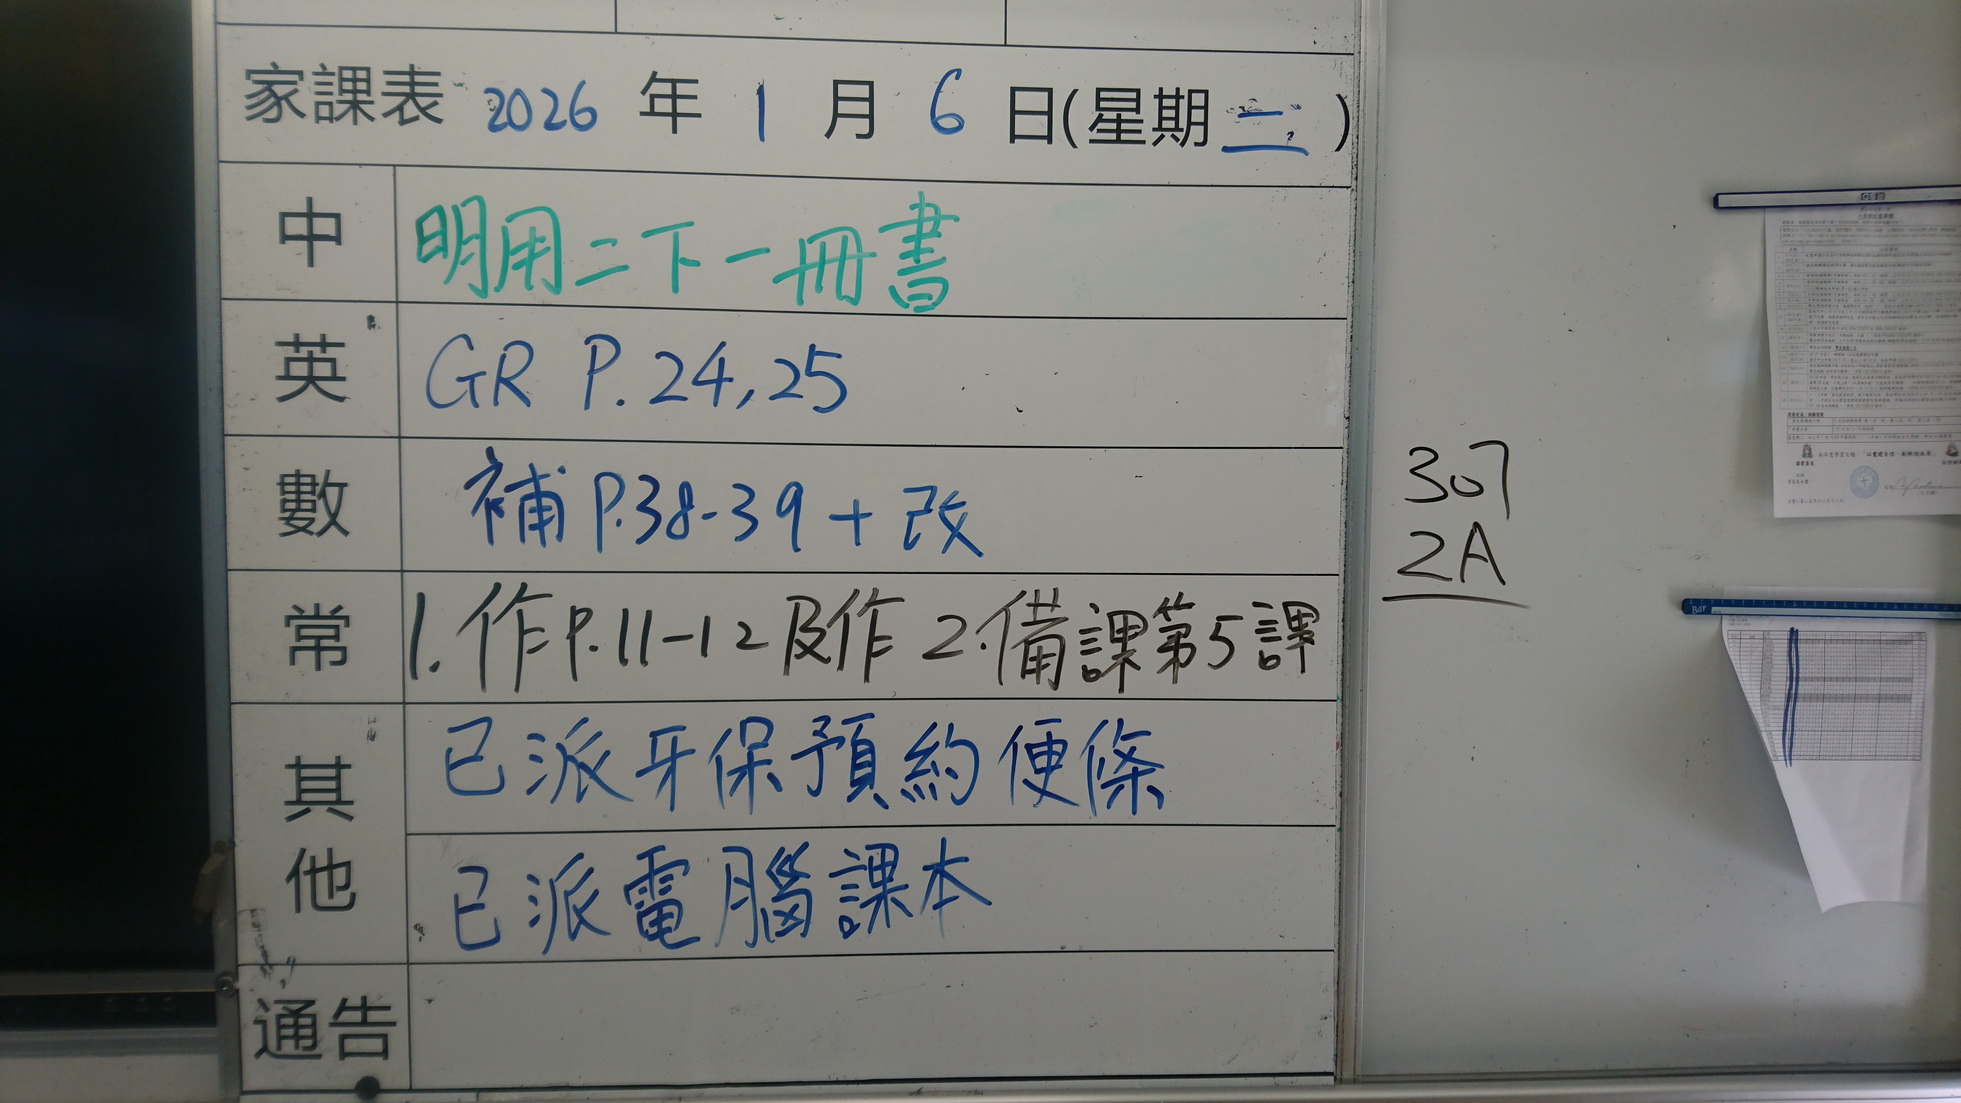 家課表 2026 年 1 月 6 日(星期二)
中 明用二下一冊書
英 GR P.24,25
數 補 P.38-39 + 改
常 1.作P.11-12及作 2.備課第5課
其他 已派牙保預約便條
已派電腦課本
通告
307
2A